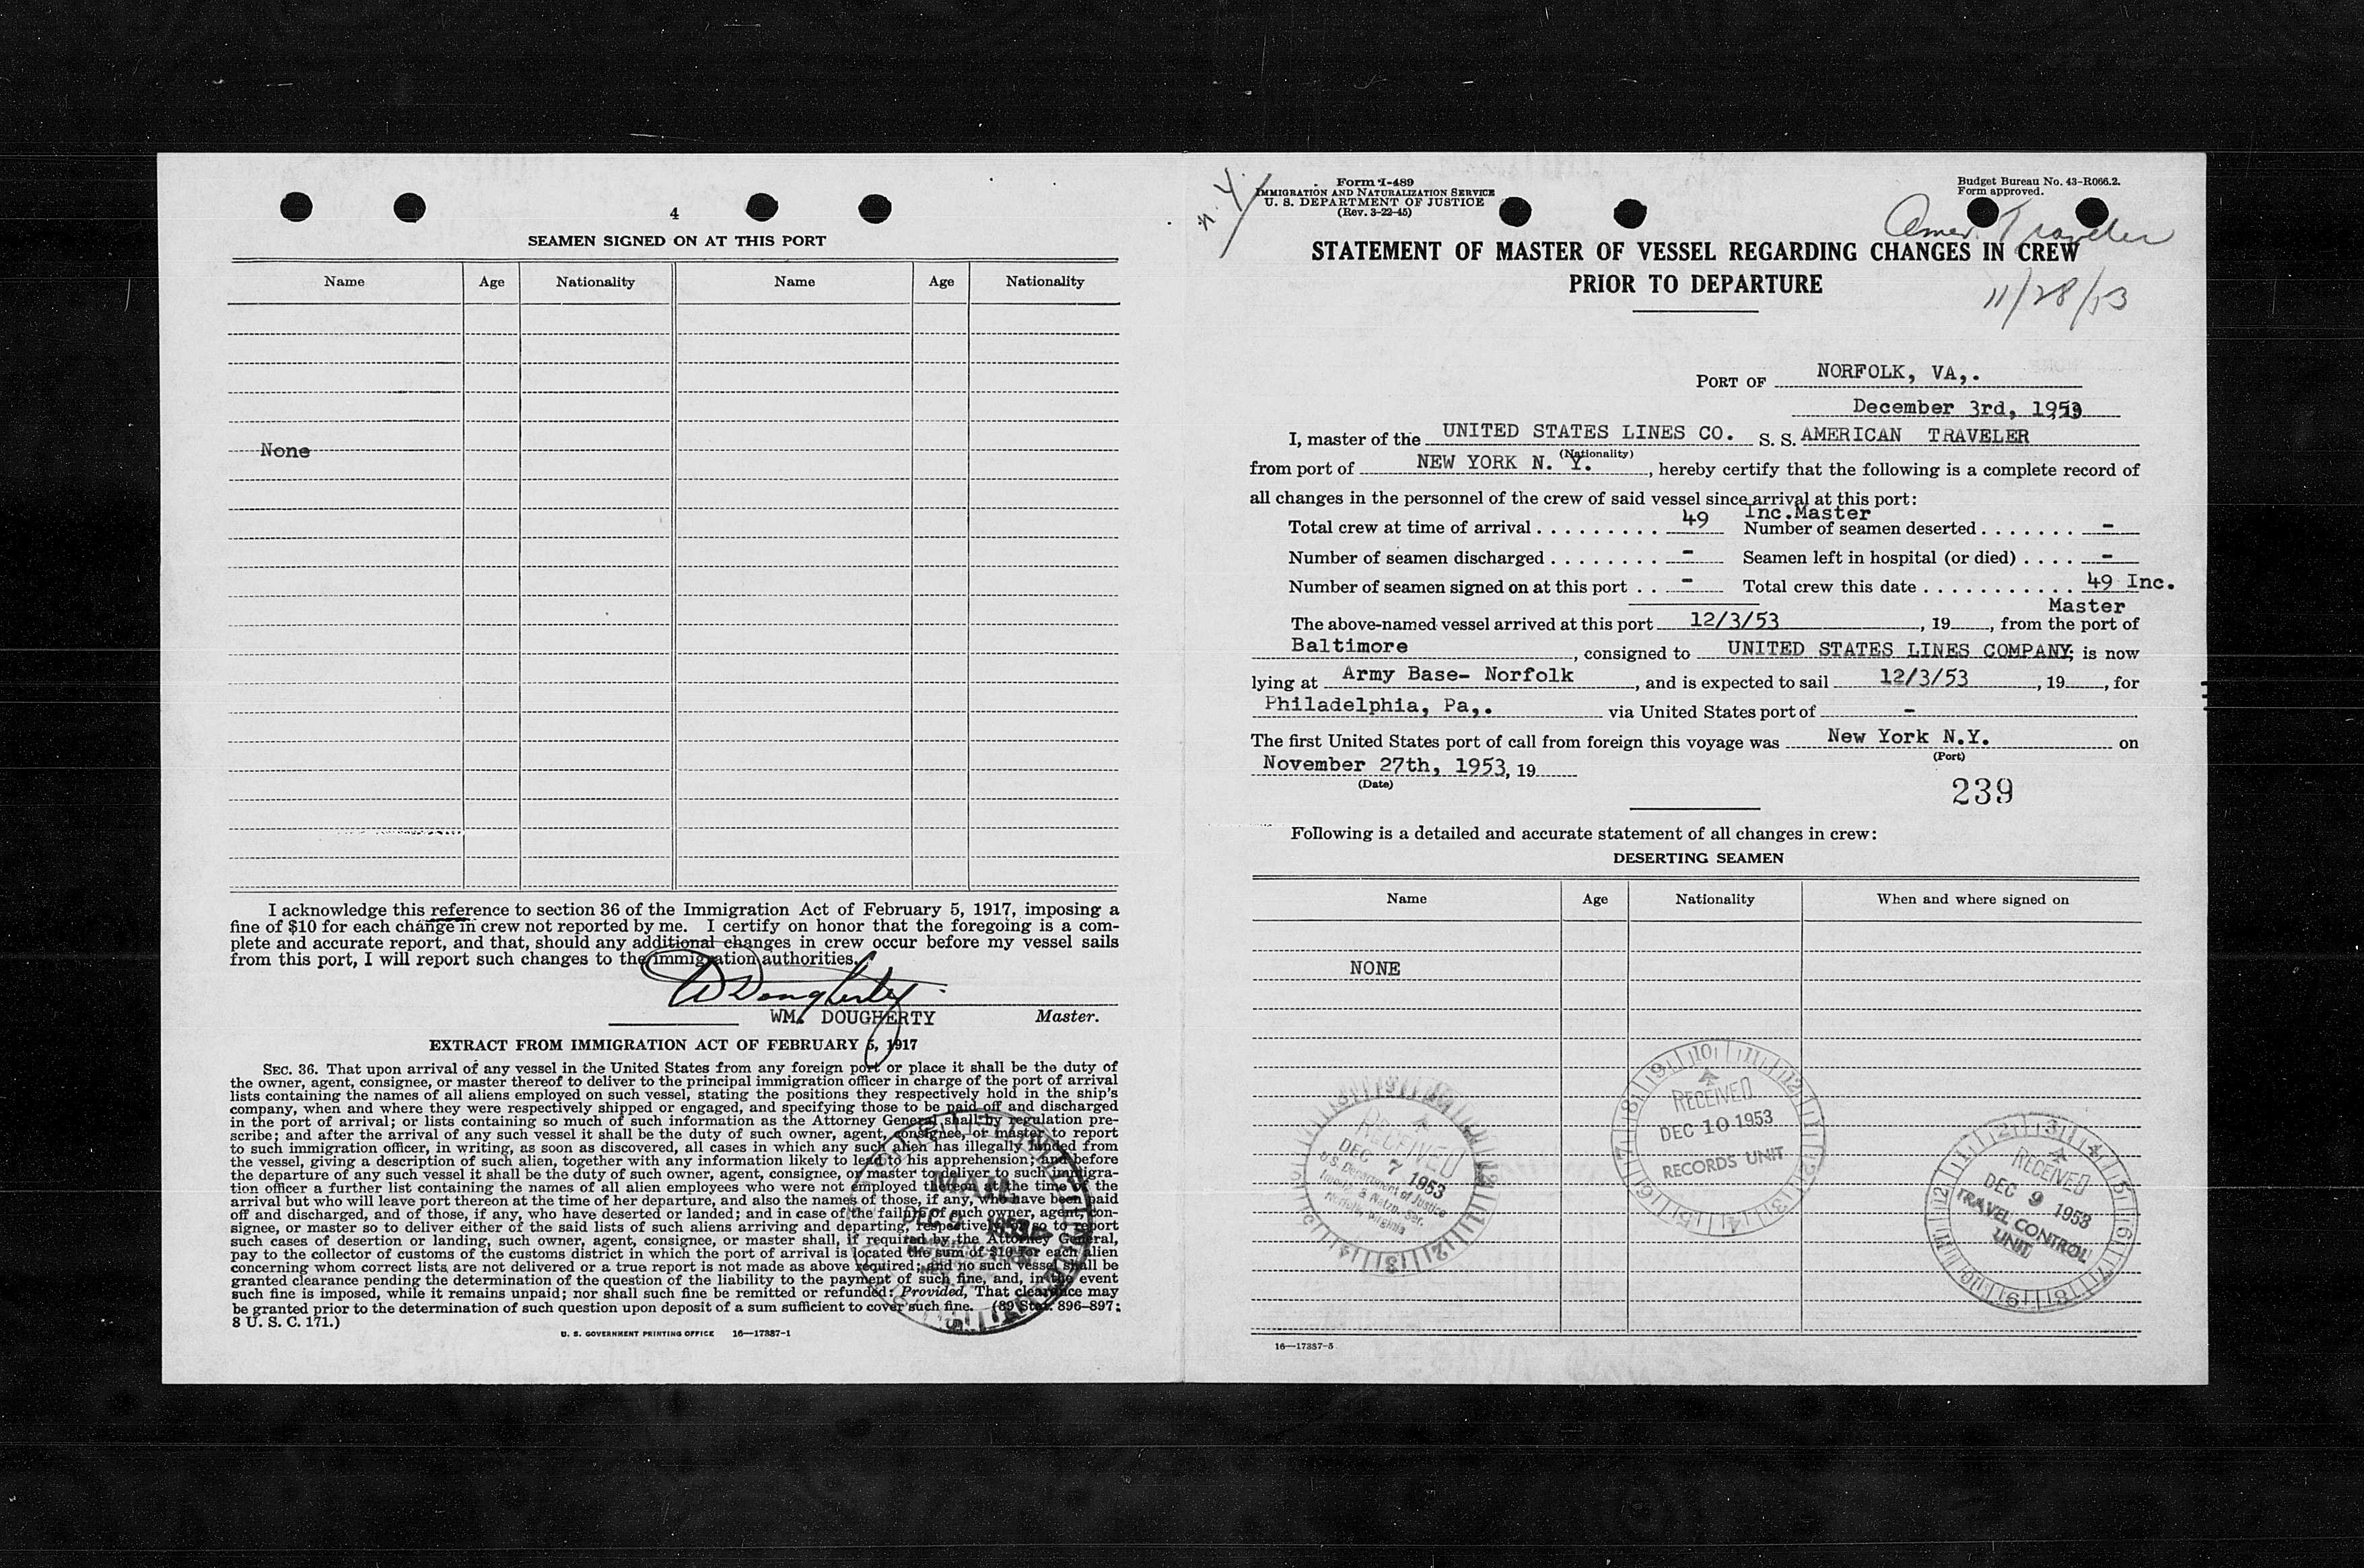 4
SEAMEN SIGNED ON AT THIS PORT
Name Age Nationality Name Age Nationality
None
I acknowledge this reference to section 36 of the Immigration Act of February 5, 1917, imposing a
fine of $10 for each change in crew not reported by me. I certify on honor that the foregoing is a com-
plete and accurate report, and that, should any additional changes in crew occur before my vessel sails
from this port, I will report such changes to the immigration authorities.
W Dougherty
WM. DOUGHERTY Master.
EXTRACT FROM IMMIGRATION ACT OF FEBRUARY 5, 1917
SEC. 36. That upon arrival of any vessel in the United States from any foreign port or place it shall be the duty of
the owner, agent, consignee, or master thereof to deliver to the principal immigration officer in charge of the port of arrival
lists containing the names of all aliens employed on such vessel, stating the positions they respectively hold in the ship's
company, when and where they were respectively shipped or engaged, and specifying those to be paid off and discharged
in the port of arrival; or lists containing so much of such information as the Attorney General shall by regulation pre-
scribe; and after the arrival of any such vessel it shall be the duty of such owner, agent, consignee, or master to report
to such immigration officer, in writing, as soon as discovered, all cases in which any such alien has illegally landed from
the vessel, giving a description of such alien, together with any information likely to lead to his apprehension; and before
the departure of any such vessel it shall be the duty of such owner, agent, consignee, or master to deliver to such immigra-
tion officer a further list containing the names of all alien employees who were not employed thereon at the time of the
arrival but who will leave port thereon at the time of her departure, and also the names of those, if any, who have been paid
off and discharged, and of those, if any, who have deserted or landed; and in case of the failure of such owner, agent, con-
signee, or master so to deliver either of the said lists of such aliens arriving and departing, respectively, or so to report
such cases of desertion or landing, such owner, agent, consignee, or master shall, if required by the Attorney General,
pay to the collector of customs of the customs district in which the port of arrival is located the sum of $10 for each alien
concerning whom correct lists are not delivered or a true report is not made as above required; and no such vessel shall be
granted clearance pending the determination of the question of the liability to the payment of such fine, and, in the event
such fine is imposed, while it remains unpaid; nor shall such fine be remitted or refunded: Provided, That clearance may
be granted prior to the determination of such question upon deposit of a sum sufficient to cover such fine. (39 Stat. 896-897;
8 U. S. C. 171.)
MAIL
DEC 9
U. S. GOVERNMENT PRINTING OFFICE 16—17387-1
n. y.
Form I-489
IMMIGRATION AND NATURALIZATION SERVICE
U. S. DEPARTMENT OF JUSTICE
(Rev. 3-22-45)
Budget Bureau No. 43-R066.2.
Form approved.
Amer. Traveler
STATEMENT OF MASTER OF VESSEL REGARDING CHANGES IN CREW
PRIOR TO DEPARTURE
11/28/53
PORT OF NORFOLK, VA,.
December 3rd, 1953
I, master of the UNITED STATES LINES CO. S. S. AMERICAN TRAVELER
(Nationality)
from port of NEW YORK N. Y. , hereby certify that the following is a complete record of
all changes in the personnel of the crew of said vessel since arrival at this port:
Total crew at time of arrival . . . . . . . . . 49 Inc.Master
Number of seamen deserted . . . . . . . -
Number of seamen discharged . . . . . . . . - Seamen left in hospital (or died) . . . . -
Number of seamen signed on at this port . . - Total crew this date . . . . . . . . . . . 49 Inc.
Master
The above-named vessel arrived at this port 12/3/53 , 19 , from the port of
Baltimore , consigned to UNITED STATES LINES COMPANY; is now
lying at Army Base- Norfolk , and is expected to sail 12/3/53 , 19 , for
Philadelphia, Pa,. via United States port of -
The first United States port of call from foreign this voyage was New York N.Y. on
(Port)
November 27th, 1953, 19
(Date)
239
Following is a detailed and accurate statement of all changes in crew:
DESERTING SEAMEN
Name Age Nationality When and where signed on
NONE
RECEIVED
DEC 7 1953
U.S. Department of Justice
Immig. & Natzn. Ser.
Norfolk, Virginia
RECEIVED
DEC 10 1953
RECORDS UNIT
RECEIVED
DEC 9 1953
TRAVEL CONTROL
UNIT
16—17387-5